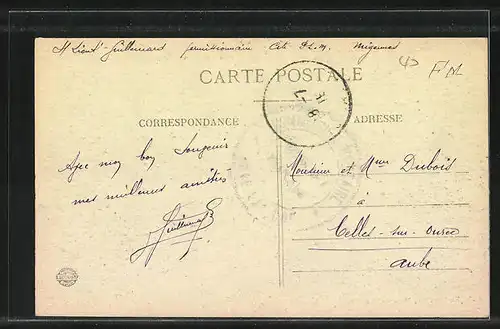 St Lieut' Guillemard permissionnaire Cie D.L.M. Migennes
F.M.
CARTE POSTALE
CORRESPONDANCE
ADRESSE
Avec mon bon Souvenir
mes meilleures amitiés
Guillemard
Monsieur et Mme Dubois
à
Celles-sur-Ource
Aube